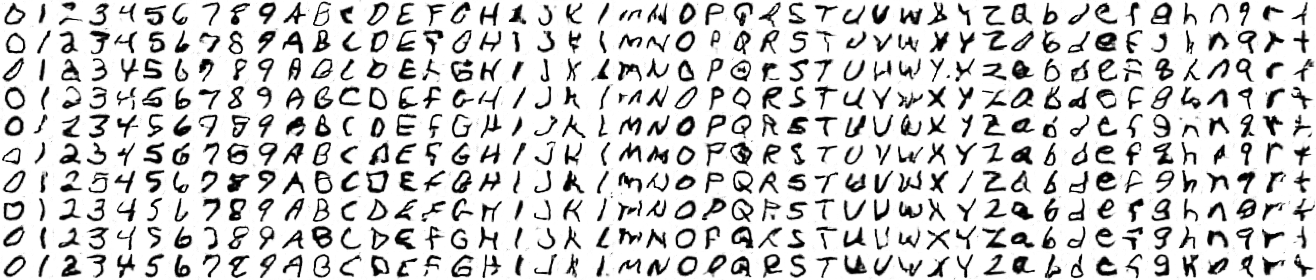 0 1 2 3 4 5 6 7 8 9 A B C D E F G H I J K l M N O P Q R S T U V W X Y Z a b d e f g h n q r t
0 1 2 3 4 5 6 7 8 9 A B C D E F G H I J K l M N O P Q R S T U V W X Y Z a b d e f g h n q r t
0 1 2 3 4 5 6 7 8 9 A B C D E F G H I J K L M N O P Q R S T U V W X Y Z a b d e f g h n q r t
0 1 2 3 4 5 6 7 8 9 A B C D E F G H I J K l M N O P Q R S T U V W X Y Z a b d e f g h n q r t
0 1 2 3 4 5 6 7 8 9 A B C D E F G H I J K l M N O P Q R S T U V W X Y Z a b d e f g h n q r t
0 1 2 3 4 5 6 7 8 9 A B C D E F G H I J K l M N O P Q R S T U V W X Y Z a b d e f g h n q r t
0 1 2 3 4 5 6 7 8 9 A B C D E F G H I J K l M N O P Q R S T U V W X Y Z a b d e f g h n q r t
0 1 2 3 4 5 6 7 8 9 A B C D E F G H I J K l M N O P Q R S T U V W X Y Z a b d e f g h n q r t
0 1 2 3 4 5 6 7 8 9 A B C D E F G H I J K l M N O P Q R S T U V W X Y Z a b d e f g h n q r t
0 1 2 3 4 5 6 7 8 9 A B C D E F G H I J K l M N O P Q R S T U V W X Y Z a b d e f g h n q r t